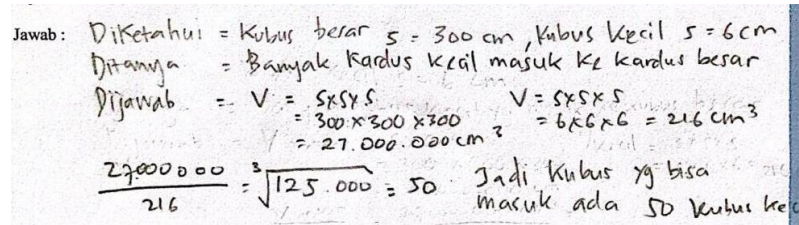 Jawab : Diketahui = Kubus besar s = 300 cm, Kubus Kecil s = 6 cm
Ditanya = Banyak Kardus Kecil masuk Ke kardus besar
Dijawab = V = s×s×s V = s×s×s
= 300 × 300 × 300 = 6×6×6 = 216 cm³
= 27.000.000 cm³
27000000/216 = ∛125.000 = 50 Jadi Kubus yg bisa
masuk ada 50 kubus kec